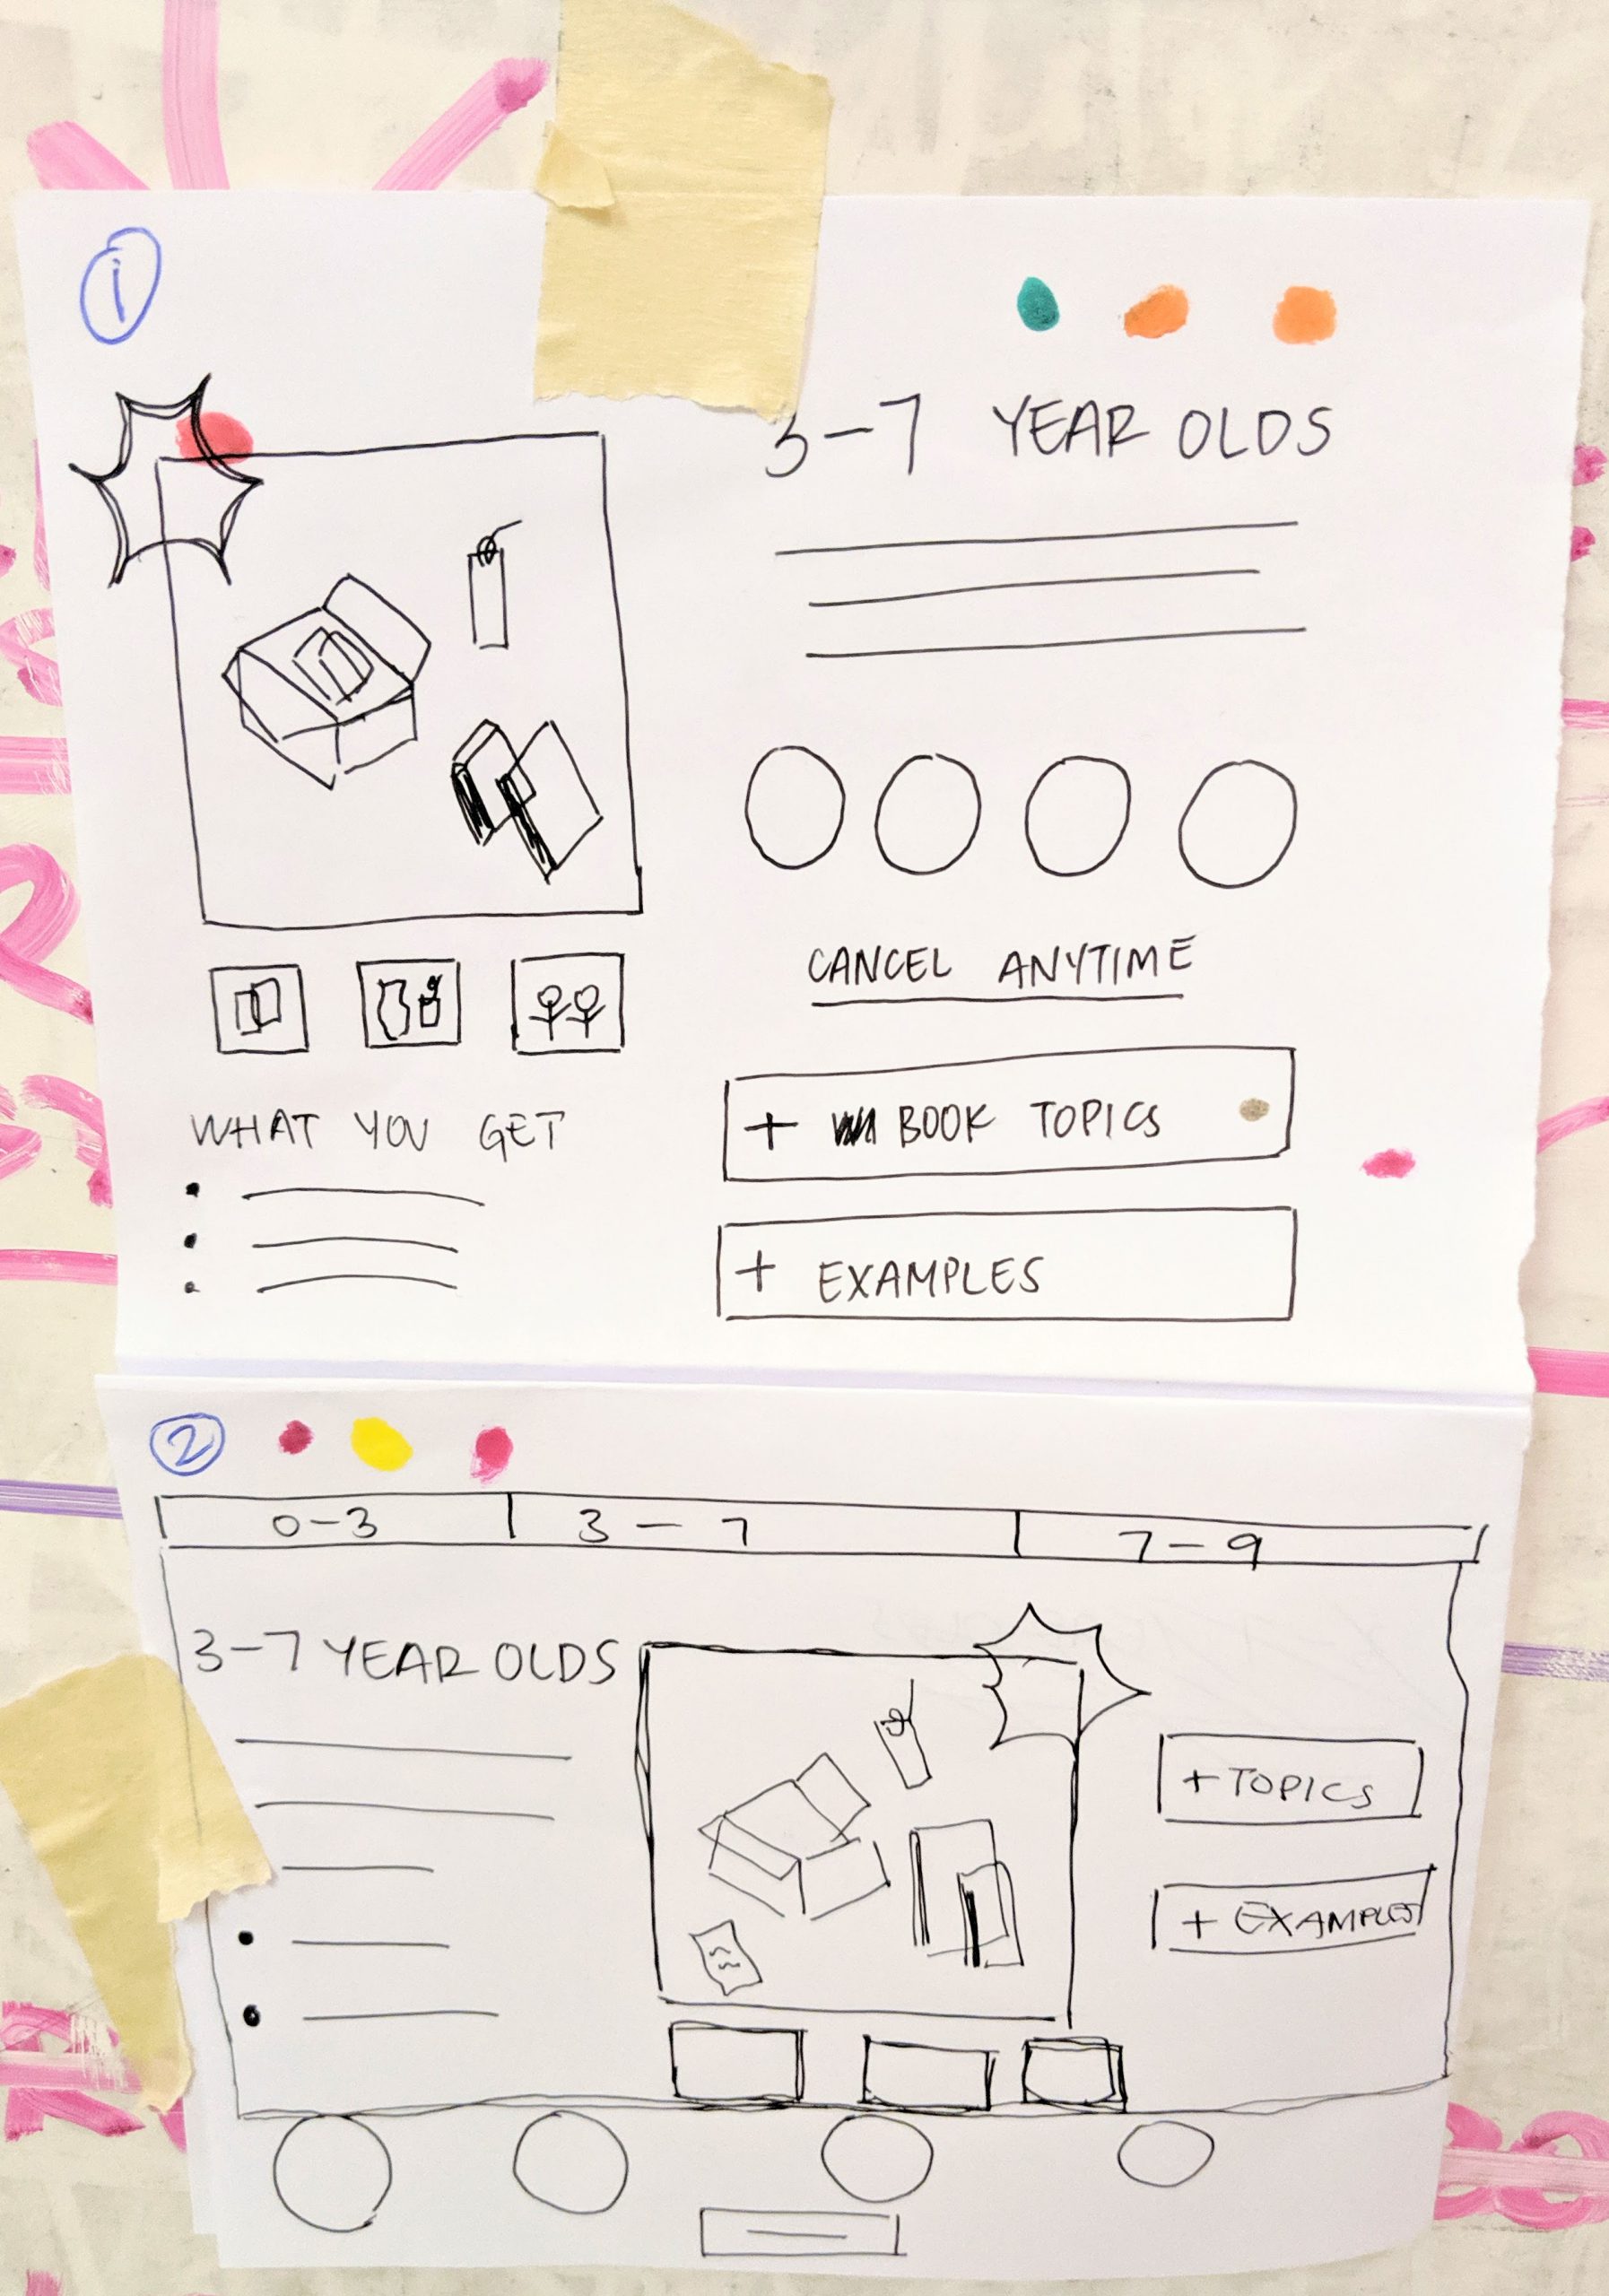 1
3-7 YEAR OLDS
CANCEL ANYTIME
WHAT YOU GET
+ BOOK TOPICS
+ EXAMPLES
2
0-3
3-7
7-9
3-7 YEAR OLDS
+ TOPICS
+ EXAMPLES